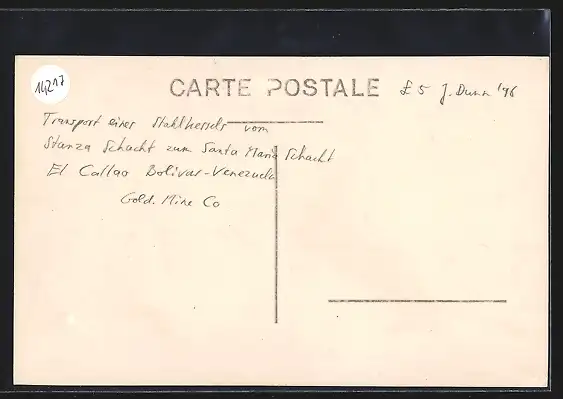 14217
CARTE POSTALE
£ 5 J. Dunn '96
Transport einer Stahlkessels vom
Stanza Schacht zum Santa Maria Schacht
El Callao Bolivar-Venezuela
Gold. Mine Co